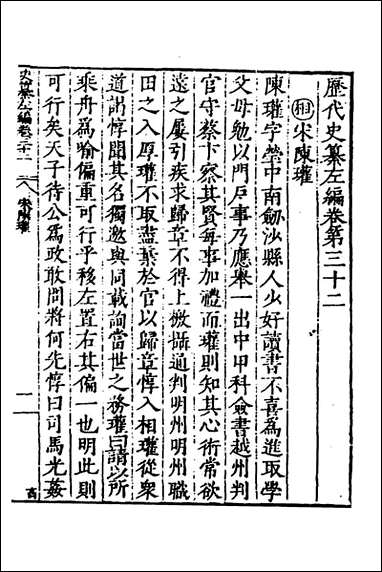 歷代史纂左編卷第三十二
相 宋陳瓘
陳瓘字瑩中南劔沙縣人少好讀書不喜為進取學
父母勉以門戶事乃應舉一出中甲科僉書越州判
官守蔡卞察其賢每事加禮而瓘則知其心術常欲
遠之屢引疾求歸章不得上檄攝通判明州明州職
田之入厚瓘不取盡棄於官以歸章惇入相瓘從衆
道謁惇聞其名獨邀與同載詢當世之務瓘曰請以所
乘舟為喻偏重可行乎移左置右其偏一也明此則
可行矣天子待公為政敢問將何先惇曰司馬光姦
史纂左編卷三十二 宋陳瓘 一